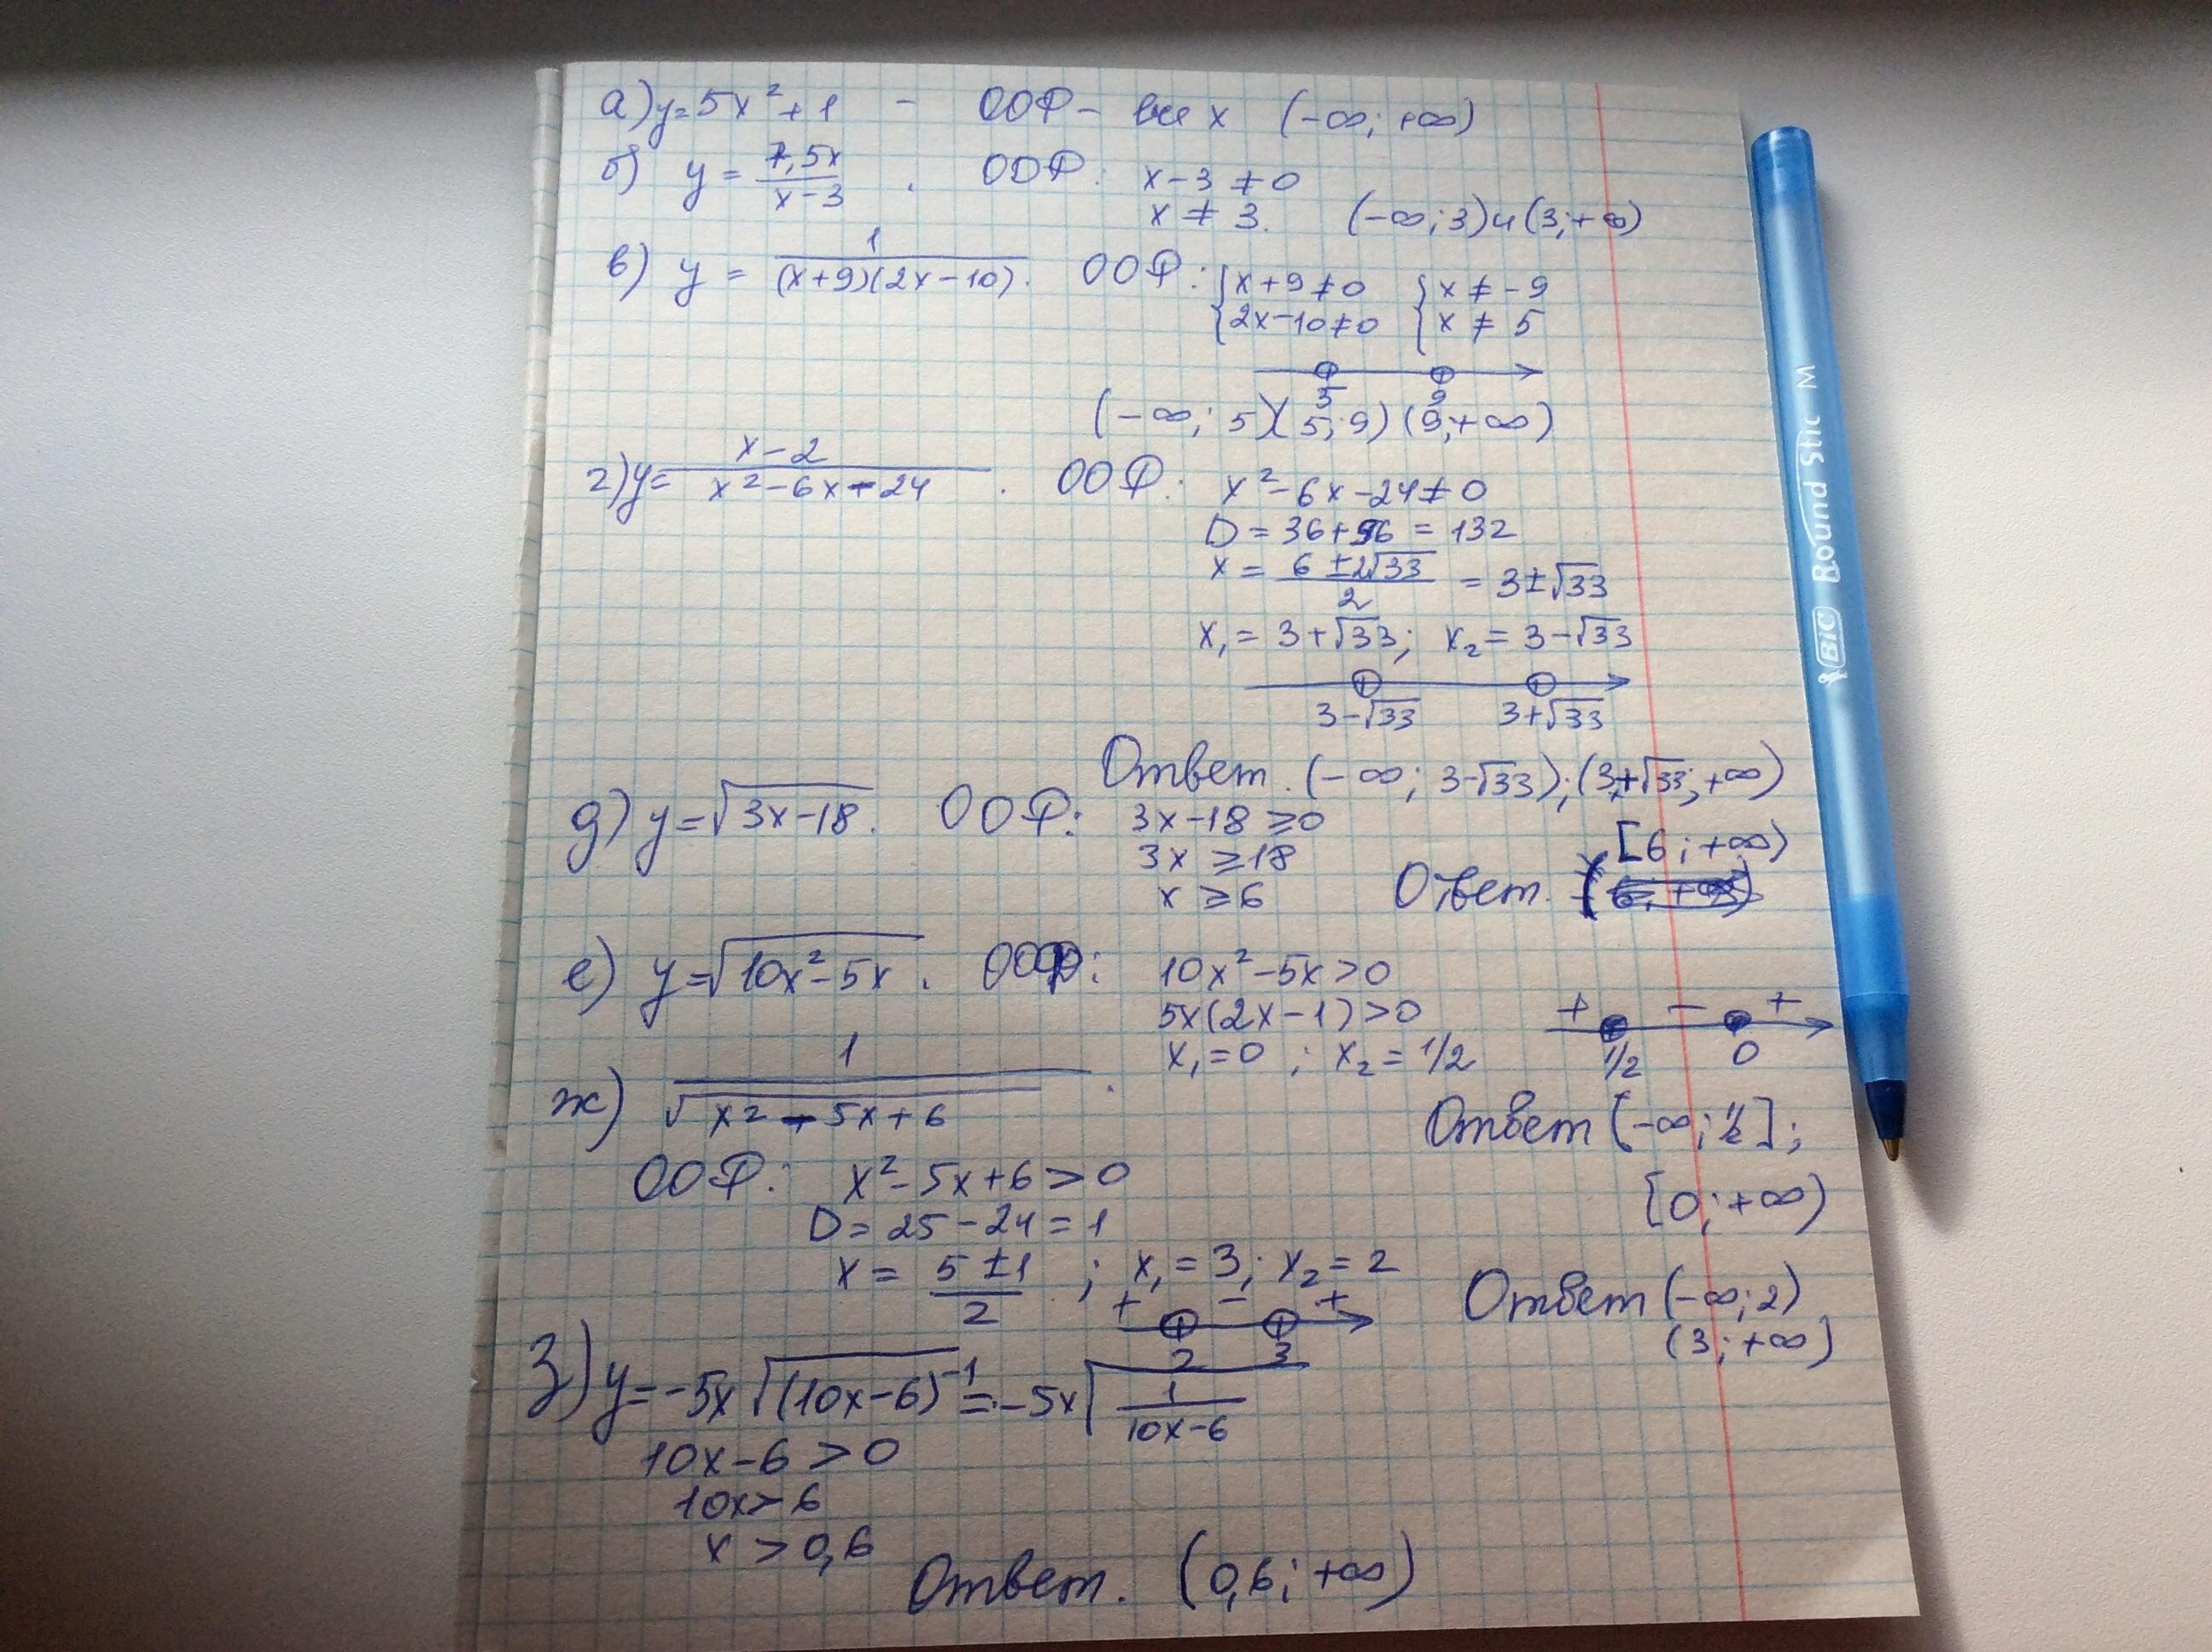 а) y=5x²+1 - ООФ - все x (-∞; +∞)
б) y = 7,5x/(x-3). ООФ: x-3≠0
x ≠ 3. (-∞; 3) и (3; +∞)
в) y = 1/((x+9)(2x-10)). ООФ: {x+9≠0 {x ≠ -9
{2x-10≠0 {x ≠ 5
5 9
(-∞; 5)(5; 9)(9; +∞)
г) y= (x-2)/(x²-6x-24). ООФ: x²-6x-24≠0
D=36+96 = 132
x = (6±2√33)/2 = 3±√33
x₁ = 3+√33; x₂ = 3-√33
3-√33 3+√33
Ответ. (-∞; 3-√33); (3+√33; +∞)
д) y=√(3x-18). ООФ: 3x-18 ≥0
3x ≥18
x ≥6
[6; +∞)
Ответ. (6; +∞)
е) y=√(10x²-5x). ООФ: 10x²-5x>0
5x(2x-1)>0
x₁=0 ; x₂=1/2
+ - +
1/2 0
Ответ (-∞; 1/2];
[0; +∞)
ж) 1/√(x²-5x+6).
ООФ: x²-5x+6>0
D=25-24=1
x = (5±1)/2 ; x₁=3; x₂=2
+ - +
2 3
Ответ (-∞; 2)
(3; +∞)
з) y=-5x√((10x-6)⁻¹) = -5x√(1/(10x-6))
10x-6 >0
10x>6
x >0,6
Ответ. (0,6; +∞)
BiC Round Stic M